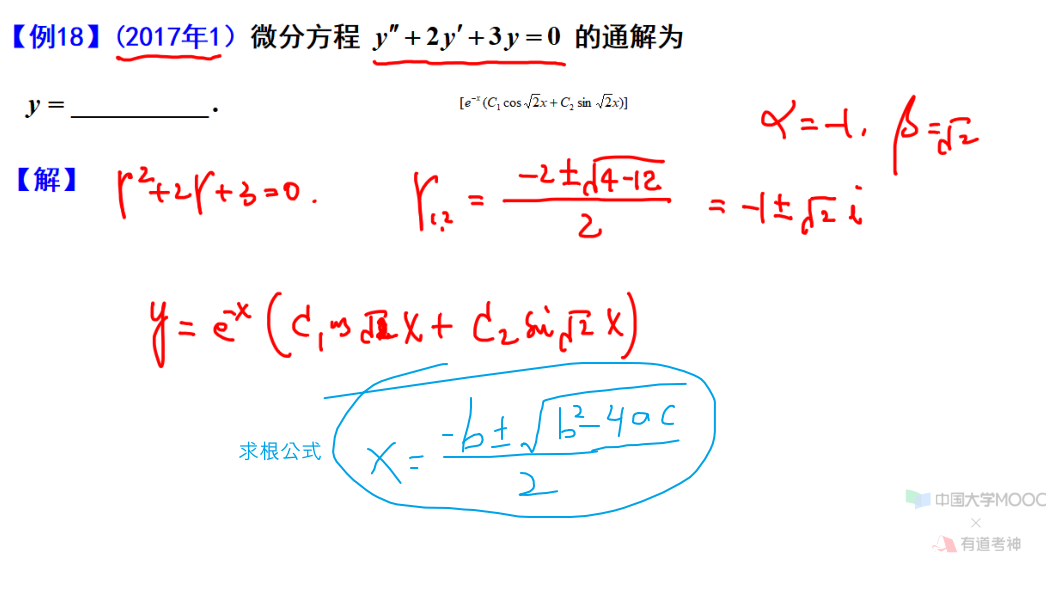 【例18】(2017年1）微分方程 y″+2y′+3y=0 的通解为
y = __________ .
[e^{-x}(C₁ cos √2x + C₂ sin √2x)]
α=-1, β=√2
【解】 r²+2r+3=0. r₁,₂ = (-2±√(4-12))/2 = -1±√2 i
y = e^{-x} (C₁ cos √2 x + C₂ sin √2 x)
求根公式 x = (-b±√(b²-4ac))/2
中国大学MOOC
×
有道考神